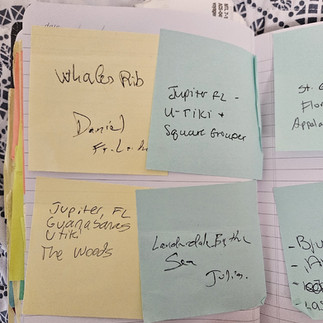 Whales Rib
Daniel
Jupiter FL -
U-Tiki +
Square Grouper
St. G
Flor
Appala
Jupiter, FL
Guanabanas
Utiki
The Woods
Lauderdale By the
Sea